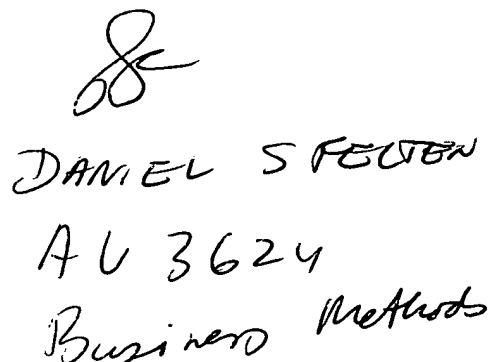 DANIEL S FELTEN
AU 3624
Business Methods